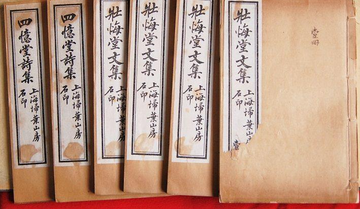 四憶堂詩集
上海埽葉山房
石印
四憶堂詩集
上海埽葉山房
石印
壯悔堂文集
上海埽葉山房
石印
壯悔堂文集
上海埽葉山房
石印
壯悔堂文集
上海埽葉山房
石印
壯悔堂文集
上海埽葉山房
石印